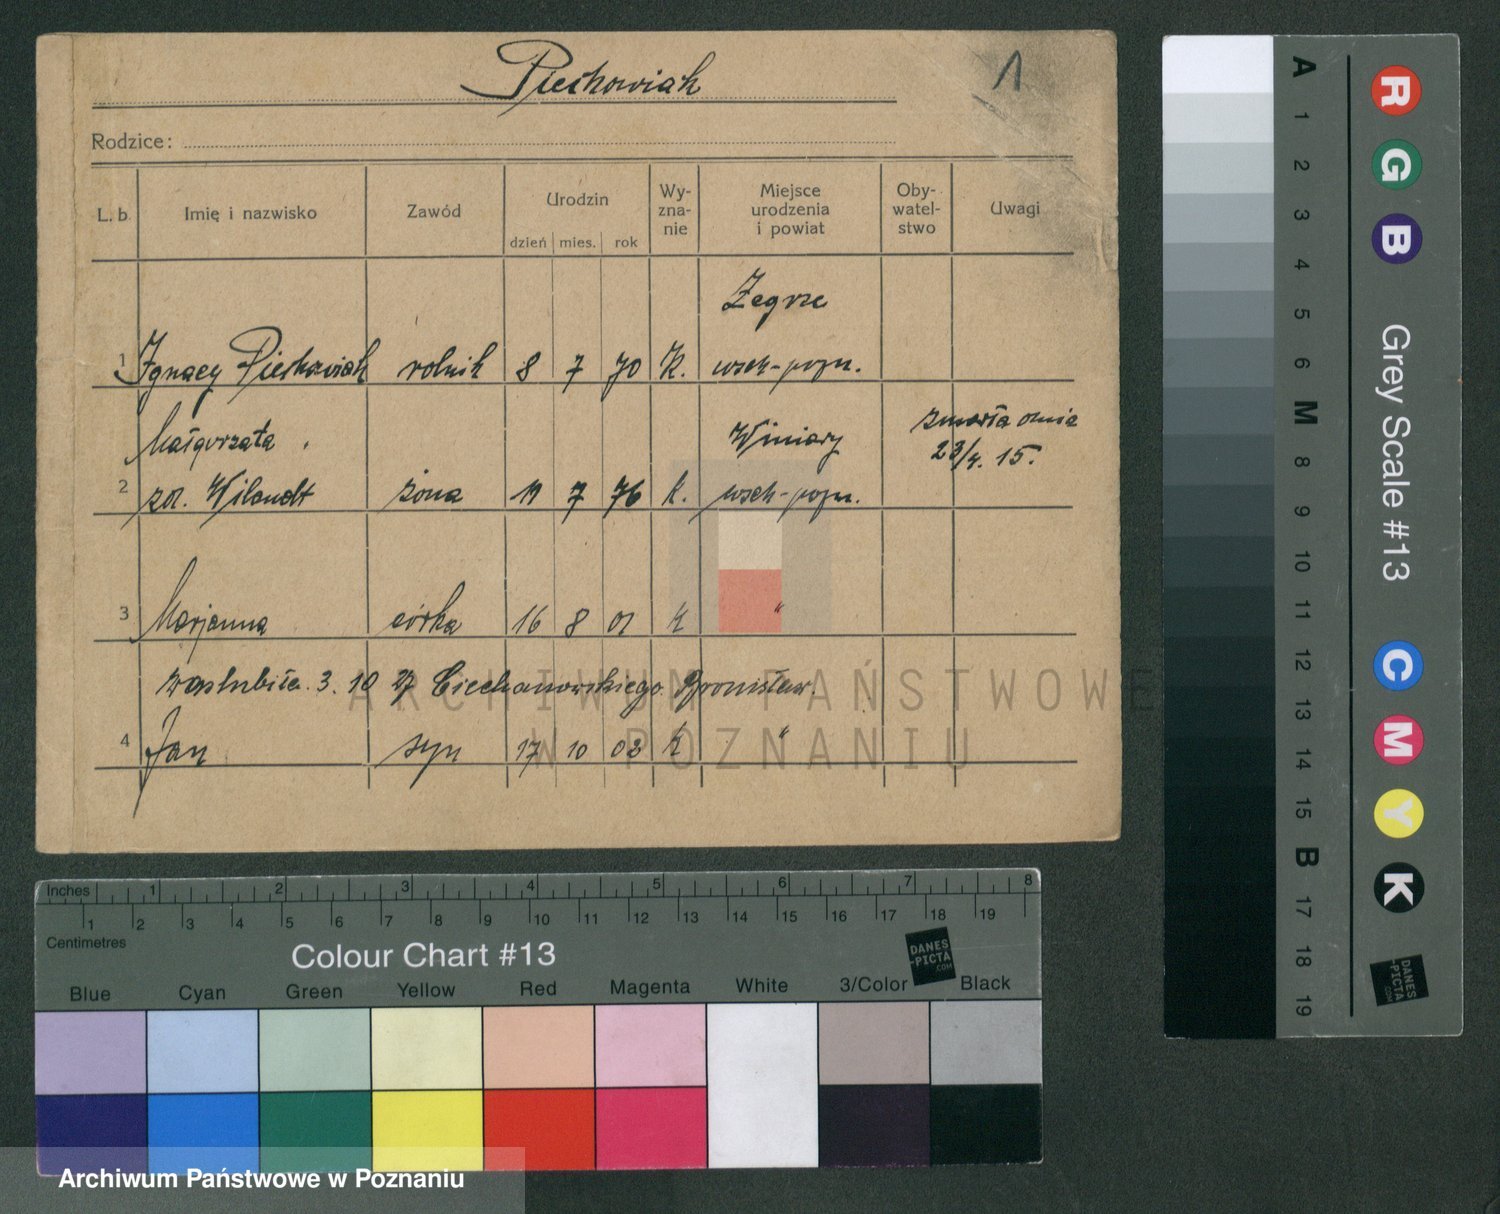 Piechowiak
1
Rodzice:
L. b. Imię i nazwisko Zawód Urodzin dzień mies. rok Wy-zna-nie Miejsce urodzenia i powiat Oby-watel-stwo Uwagi
Żegrze
1 Ignacy Piechowiak rolnik 8 7 70 K. wsch-pozn.
Małgorzata Winiary zmarła dnia
23/4. 15.
2 zd. Wilandt żona 11 7 76 k. wsch-pozn.
3 Marjanna córka 16 8 01 k "
zaślubiła 3. 10 27 Ciechanowskiego Bronisław.
4 Jan syn 17 10 02 k "
ARCHIWUM PAŃSTWOWE
W POZNANIU
Inches 1 2 3 4 5 6 7 8
1 2 3 4 5 6 7 8 9 10 11 12 13 14 15 16 17 18 19
Centimetres
Colour Chart #13
DANES
-PICTA
.COM
Blue Cyan Green Yellow Red Magenta White 3/Color Black
Archiwum Państwowe w Poznaniu
A 1 2 3 4 5 6 M 8 9 10 11 12 13 14 15 B 17 18 19
R G B
Grey Scale #13
C M Y K
DANES
-PICTA
.COM